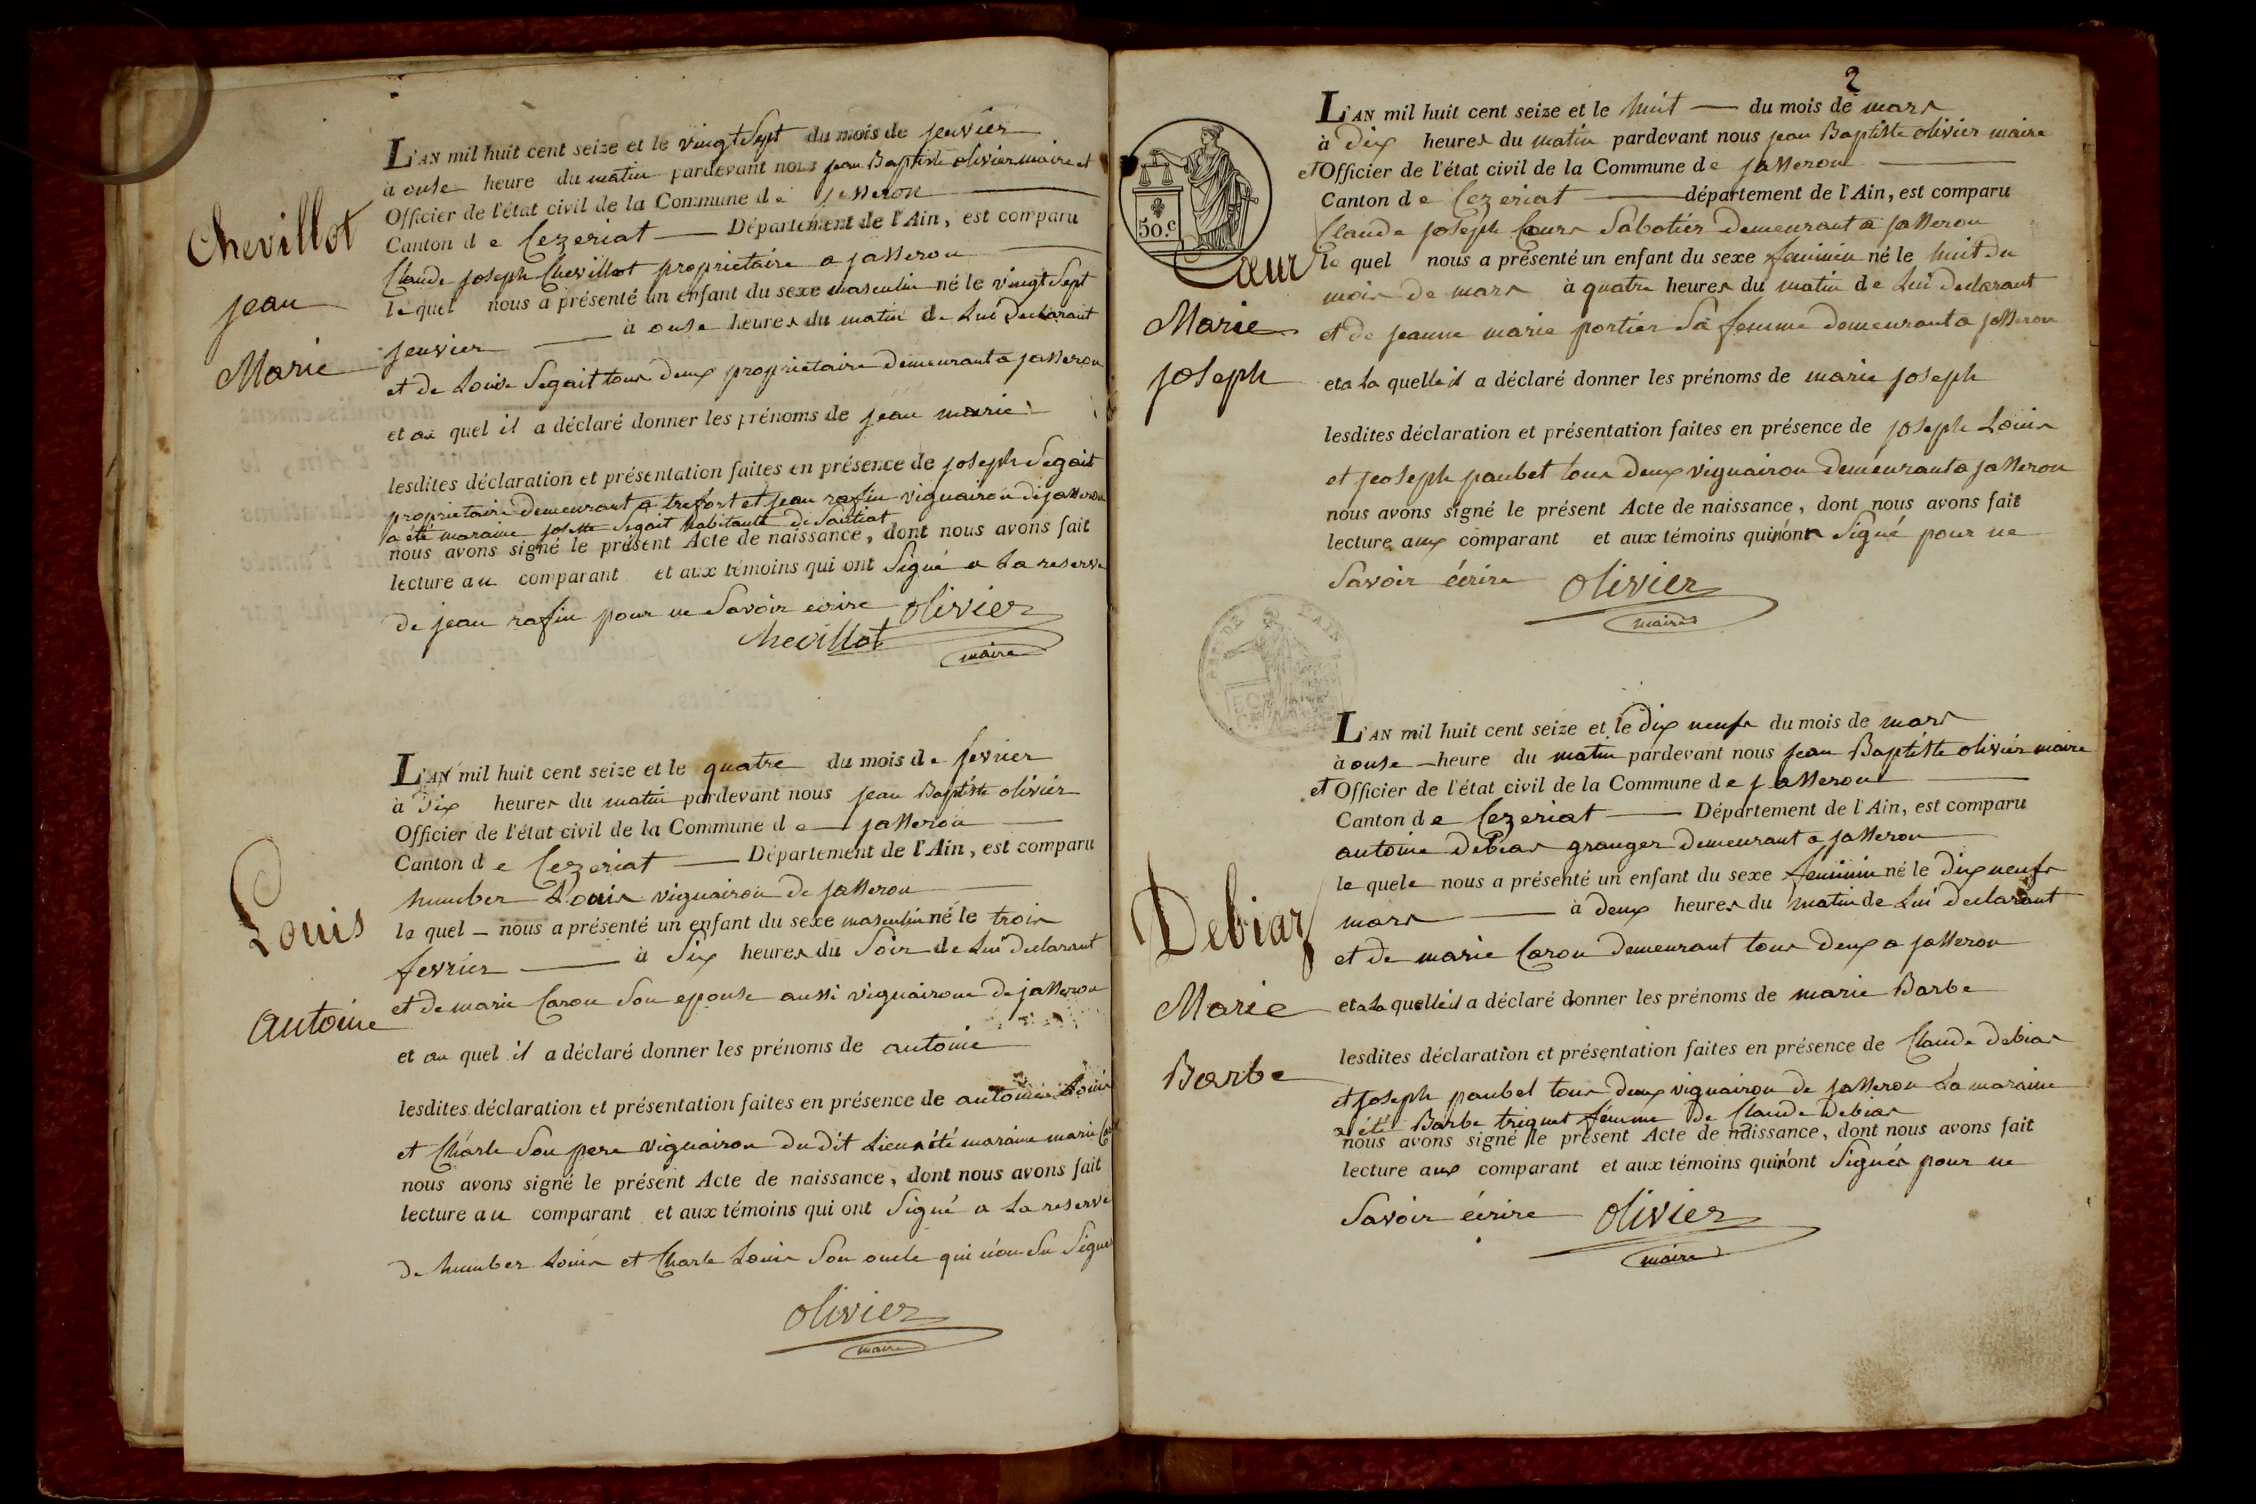 L'AN mil huit cent seize et le vingt Sept du mois de jenvier
à onse heure du matin pardevant nous jean Baptiste olivier maire et
Officier de l'état civil de la Commune de jasseron
Canton de Cezeriat Département de l'Ain, est comparu
Claude joseph Chevillot proprietaire a jasseron
le quel nous a présenté un enfant du sexe masculin né le vingt Sept
jenvier à onse heures du matin de Lui declarant
et de Louise Segait tous deux proprietaire demeurant a jasseron
et au quel il a déclaré donner les prénoms de jean marie
lesdites déclaration et présentation faites en présence de joseph Segait
proprietaire demeurant a trefort et jean rafin vignairon de jasseron
a été maraine josette Segait habitante de
nous avons signé le présent Acte de naissance, dont nous avons fait
lecture au comparant et aux témoins qui ont Signé a La reserve
de jean rafin pour ne Savoir ecrire olivier
chevillot maire
Chevillot
jean
Marie
L'AN mil huit cent seize et le quatre du mois de fevrier
à dix heures du matin pardevant nous jean Baptiste olivier
Officier de l'état civil de la Commune de jasseron
Canton de Cezeriat Département de l'Ain, est comparu
humber Louis vignairon de jasseron
le quel nous a présenté un enfant du sexe masculin né le trois
fevrier à Six heures du Soir de Lui declarant
et de marie Caron Son epouse aussi vignairone de jasseron
et au quel il a déclaré donner les prénoms de antoine
lesdites déclaration et présentation faites en présence de antoine Louis
et Charle Son pere vignairon du dit Lieu a été maraine marie
nous avons signé le présent Acte de naissance, dont nous avons fait
lecture au comparant et aux témoins qui ont Signé a La reserve
de humber Louis et Charle Louis Son oncle qui n'on Su Signer
olivier
maire
Louis
antoine
2
L'AN mil huit cent seize et le huit du mois de mars
à dix heures du matin pardevant nous jean Baptiste olivier maire
et Officier de l'état civil de la Commune de jasseron
Canton de Cezeriat département de l'Ain, est comparu
Claude joseph Cœur Sabotier demeurant a jasseron
le quel nous a présenté un enfant du sexe feminin né le huit du
mois de mars à quatre heures du matin de Lui declarant
et de jeanne marie portier Sa femme demeurant a jasseron
et a La quelle il a déclaré donner les prénoms de marie joseph
lesdites déclaration et présentation faites en présence de joseph Louis
et jeoseph paubet tous deux vignairon demeurant a jasseron
nous avons signé le présent Acte de naissance, dont nous avons fait
lecture aux comparant et aux témoins qui n'ont Signé pour ne
Savoir écrire olivier
maire
50.c
Cœur
Marie
joseph
DE L'AIN
L'AN mil huit cent seize et le dix neufs du mois de mars
à onse heure du matin pardevant nous jean Baptiste olivier maire
et Officier de l'état civil de la Commune de jasseron
Canton de Cezeriat Département de l'Ain, est comparu
antoine debias granger demeurant a jasseron
le quele nous a présenté un enfant du sexe feminin né le dix neufs
mars à deux heures du matin de Lui declarant
et de marie Caron demeurant tous deux a jasseron
et a La quelle il a déclaré donner les prénoms de marie Barbe
lesdites déclaration et présentation faites en présence de Claude debias
et joseph paubel tous deux vignairon de jasseron La maraine
a été Barbe triquet femme de Claude debias
nous avons signé le présent Acte de naissance, dont nous avons fait
lecture aux comparant et aux témoins qui n'ont Signés pour ne
Savoir écrire olivier
maire
Debiaz
Marie
Barbe